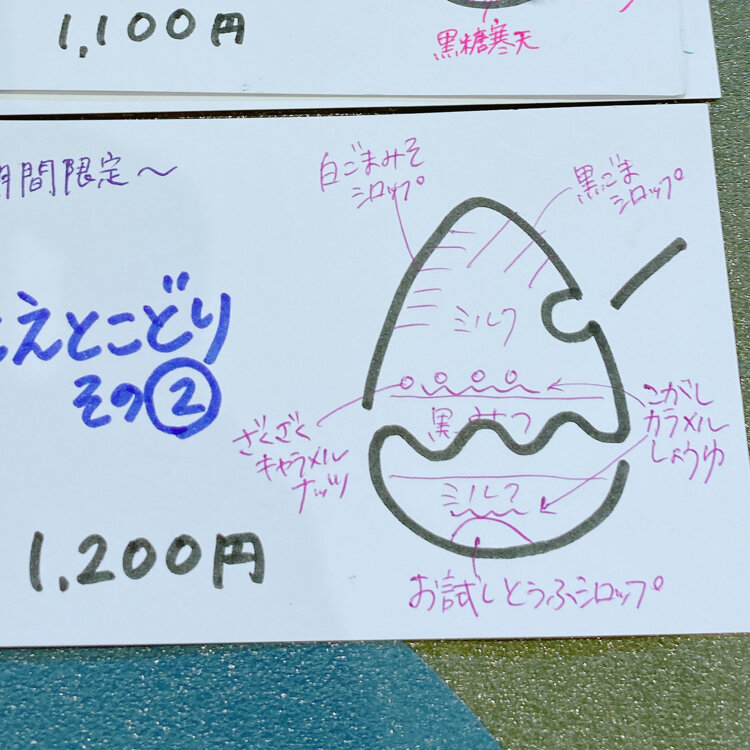 1,100円
黒糖寒天
期間限定〜
えとこどり
その②
1,200円
白ごまみそ
シロップ
黒ごま
シロップ
ミルク
ざくざく
キャラメル
ナッツ
黒みつ
こがし
カラメル
しょうゆ
ミルク
お試しとうふシロップ